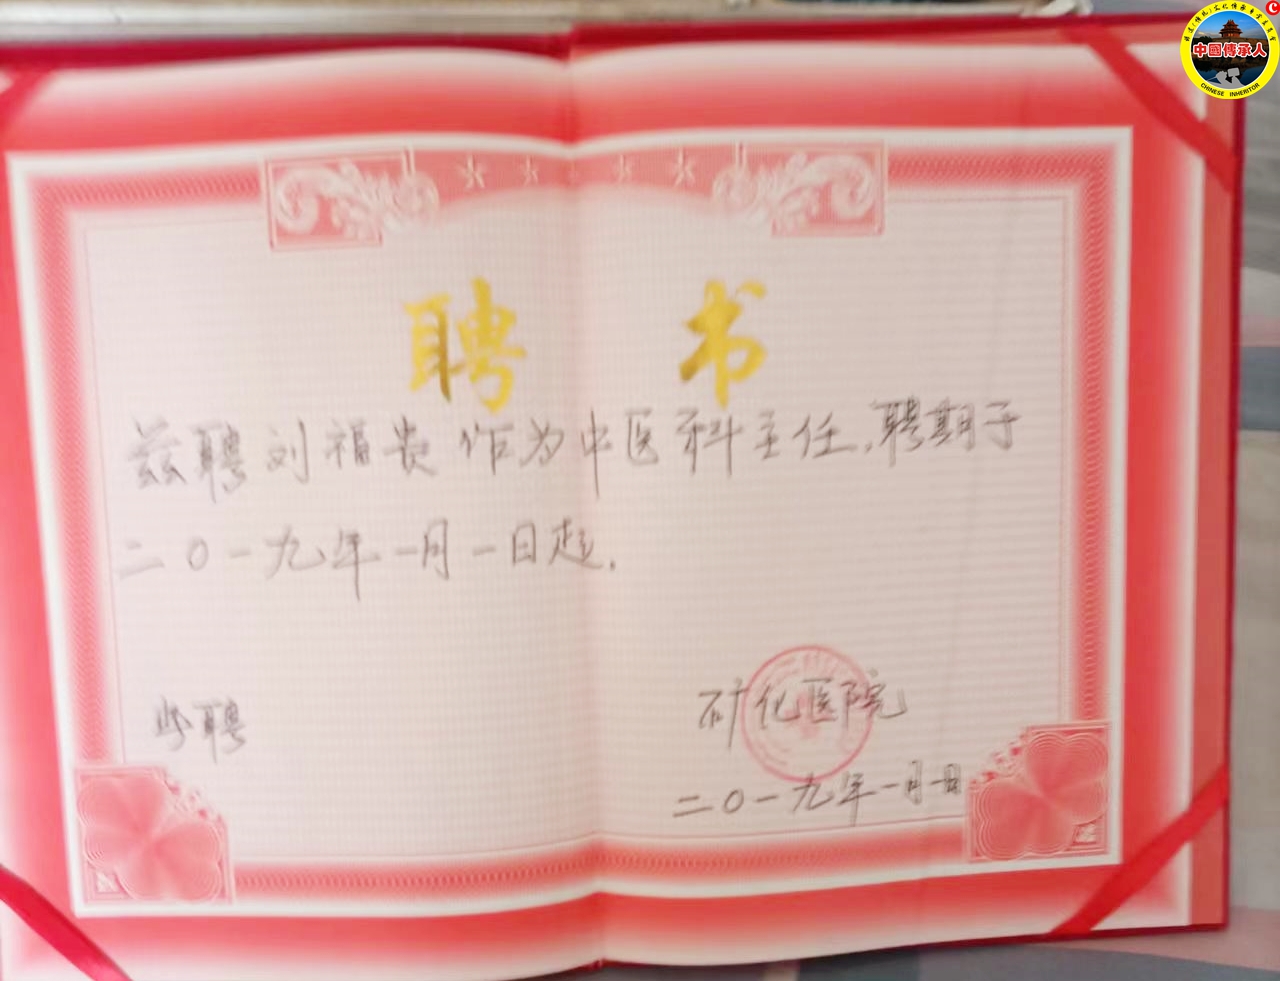 中國傳承人
CHINESE INHERITOR
聘书
兹聘刘福贵作为中医科主任,聘期于
二〇一九年一月一日起.
此聘
矿化医院
二〇一九年一月一日